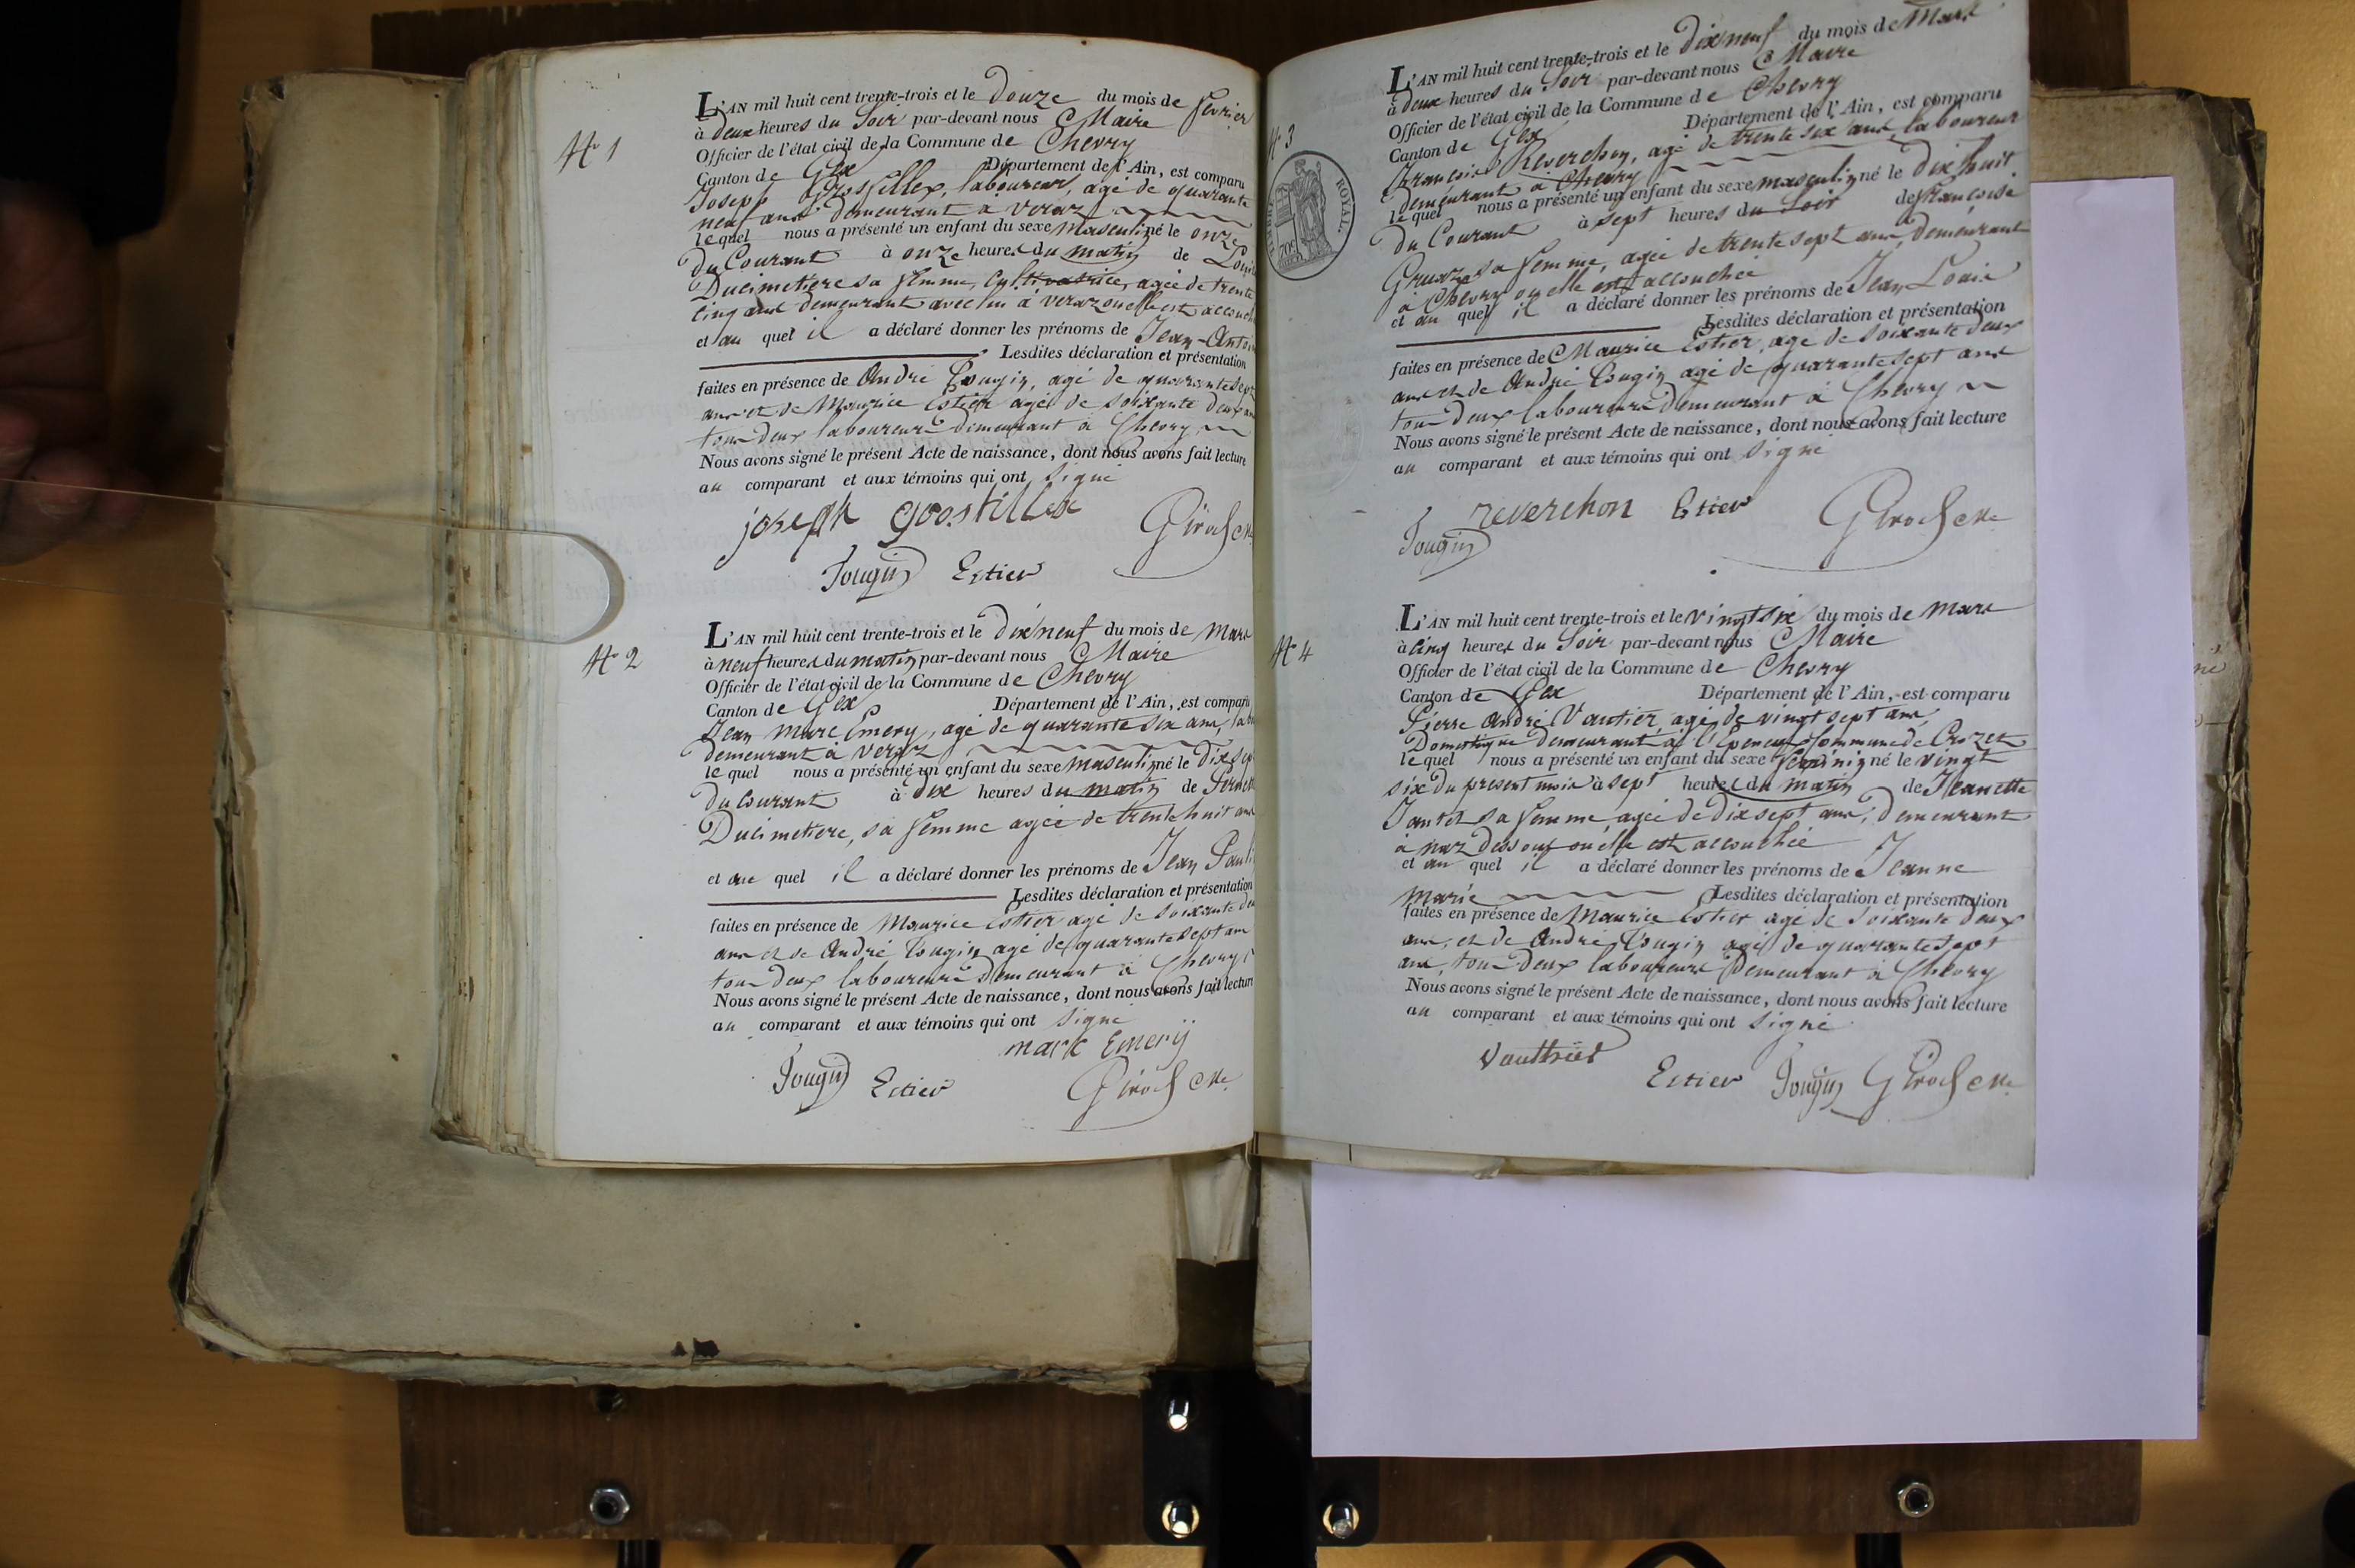 N° 1
L'AN mil huit cent trente-trois et le Douze du mois de fevrier
à Deux heures du Soir par-devant nous Maire
Officier de l'état civil de la Commune de Chevry
Canton de Gex Département de l'Ain, est comparu
Joseph Grosfillex, laboureur, agé de quarante
neuf ans demeurant a veraz
lequel nous a présenté un enfant du sexe masculin né le onze
du Courant à onze heures du matin de
Ducimetiere sa femme, Cultivatrice, agée de trente
cinq ans demeurant avec lui à veraz ou elle est
et au quel il a déclaré donner les prénoms de Jean-
Lesdites déclaration et présentation
faites en présence de André Tougin, agé de quarante sept
ans et de Maurice Estier agé de soixante deux
tous deux laboureurs demeurant à Chevry
Nous avons signé le présent Acte de naissance, dont nous avons fait lecture
au comparant et aux témoins qui ont Signé
joseph grosfillex Girod Me
Tougin Estier
N° 2
L'AN mil huit cent trente-trois et le Dix neuf du mois de mars
à neuf heures du matin par-devant nous Maire
Officier de l'état civil de la Commune de Chevry
Canton de Gex Département de l'Ain, est comparu
Jean Marc Emery, agé de quarante six ans,
demeurant à veraz
lequel nous a présenté un enfant du sexe masculin né le Dix
du courant à dix heures du matin de
Ducimetiere, sa femme agée de trente huit ans
et au quel il a déclaré donner les prénoms de Jean
Lesdites déclaration et présentation
faites en présence de Maurice Estier agé de soixante
ans et de André Tougin agé de quarante sept ans
tous deux laboureurs demeurant à Chevry
Nous avons signé le présent Acte de naissance, dont nous avons fait lecture
au comparant et aux témoins qui ont signé
mark Emerÿ
Tougin Estier Girod Me
N° 3
TIMBRE ROYAL
70c
L'AN mil huit cent trente-trois et le Dix neuf du mois de Mars
à deux heures du Soir par-devant nous Maire
Officier de l'état civil de la Commune de Chevry
Canton de Gex Département de l'Ain, est comparu
François Reverchon, agé de trente six ans, laboureur
demeurant à Chevry
lequel nous a présenté un enfant du sexe masculin né le dix huit
du Courant à sept heures du Soir de Françoise
Gruaz sa femme, agée de trente sept ans, demeurant
à Chevry ou elle est accouchée
et au quel il a déclaré donner les prénoms de Jean Louis
Lesdites déclaration et présentation
faites en présence de Maurice Estier, agé de soixante deux
ans et de André Tougin agé de quarante sept ans
tous deux laboureurs demeurant à Chevry
Nous avons signé le présent Acte de naissance, dont nous avons fait lecture
au comparant et aux témoins qui ont signé
reverchon Estier Girod Me
Tougin
N° 4
L'AN mil huit cent trente-trois et le vingt six du mois de mars
à cinq heures du Soir par-devant nous Maire
Officier de l'état civil de la Commune de Chevry
Canton de Gex Département de l'Ain, est comparu
Pierre André Vautier, agé de vingt sept ans,
Domestique demeurant à Commune de Crozet
lequel nous a présenté un enfant du sexe feminin né le vingt
six du present mois à sept heures du matin de Jeanette
sa femme agée de dix sept ans, demeurant
à naz dessous ou elle est accouchée
et au quel il a déclaré donner les prénoms de Jeanne
Marie Lesdites déclaration et présentation
faites en présence de Maurice Estier agé de soixante deux
ans, et de André Tougin agé de quarante sept
ans, tous deux laboureurs demeurant à Chevry
Nous avons signé le présent Acte de naissance, dont nous avons fait lecture
au comparant et aux témoins qui ont signé
Vautthier
Estier Tougin Girod Me